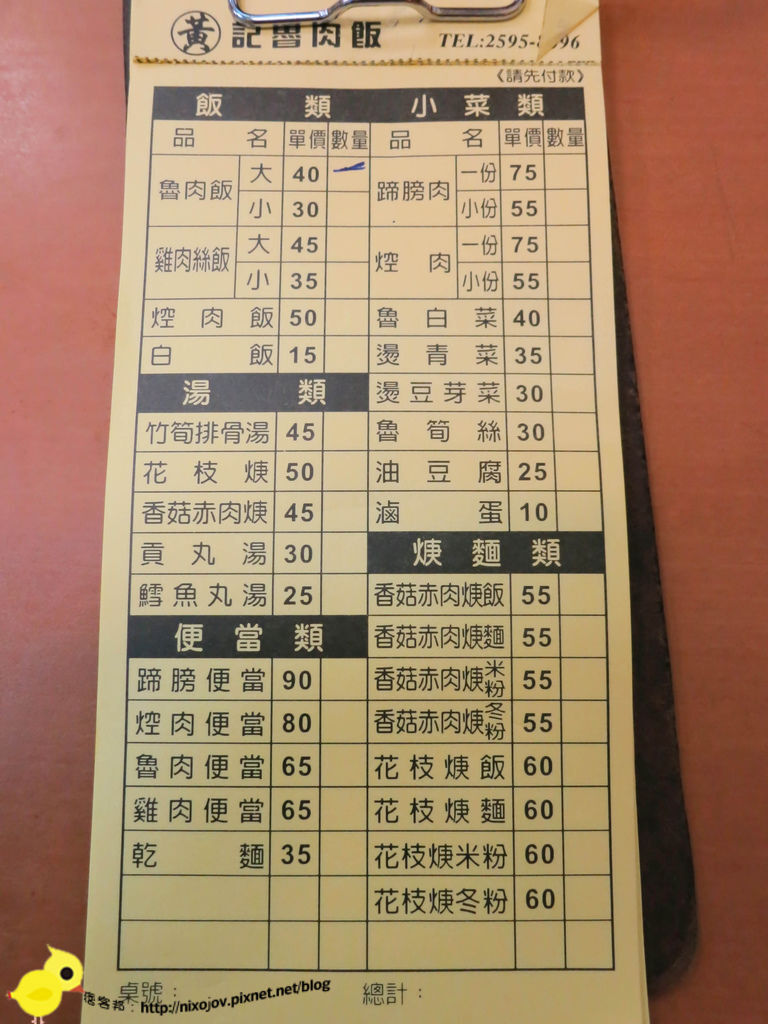 黃 記魯肉飯
TEL:2595-8396
《請先付款》
飯 類
品 名 單價 數量
魯肉飯 大 40
小 30
雞肉絲飯 大 45
小 35
焢肉飯 50
白飯 15
湯 類
竹筍排骨湯 45
花枝焿 50
香菇赤肉焿 45
貢丸湯 30
鱈魚丸湯 25
便當類
蹄膀便當 90
焢肉便當 80
魯肉便當 65
雞肉便當 65
乾麵 35
小菜類
品 名 單價 數量
蹄膀肉 一份 75
小份 55
焢肉 一份 75
小份 55
魯白菜 40
燙青菜 35
燙豆芽菜 30
魯筍絲 30
油豆腐 25
滷蛋 10
焿麵類
香菇赤肉焿飯 55
香菇赤肉焿麵 55
香菇赤肉焿米粉 55
香菇赤肉焿冬粉 55
花枝焿飯 60
花枝焿麵 60
花枝焿米粉 60
花枝焿冬粉 60
桌號： 總計：
痞客邦：http://nixojov.pixnet.net/blog